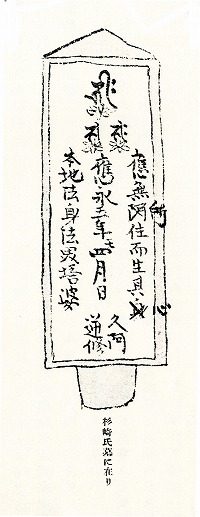 應無所住而生其心
應永三年四月日
久阿
逆修
本地法身法界塔婆
杉崎氏墓に在り